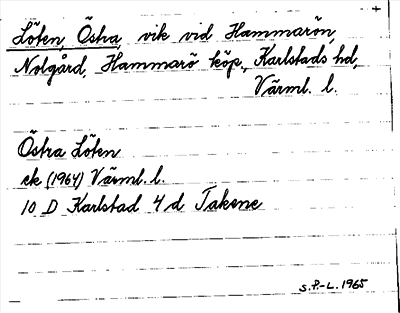 Löten, Östra, vik vid Hammarön,
Nolgård, Hammarö köp., Karlstads hd,
Värml. l.
Östra Löten
ek (1964) Värml. l.
10 D Karlstad 4 d Takene
S.P.-L. 1965